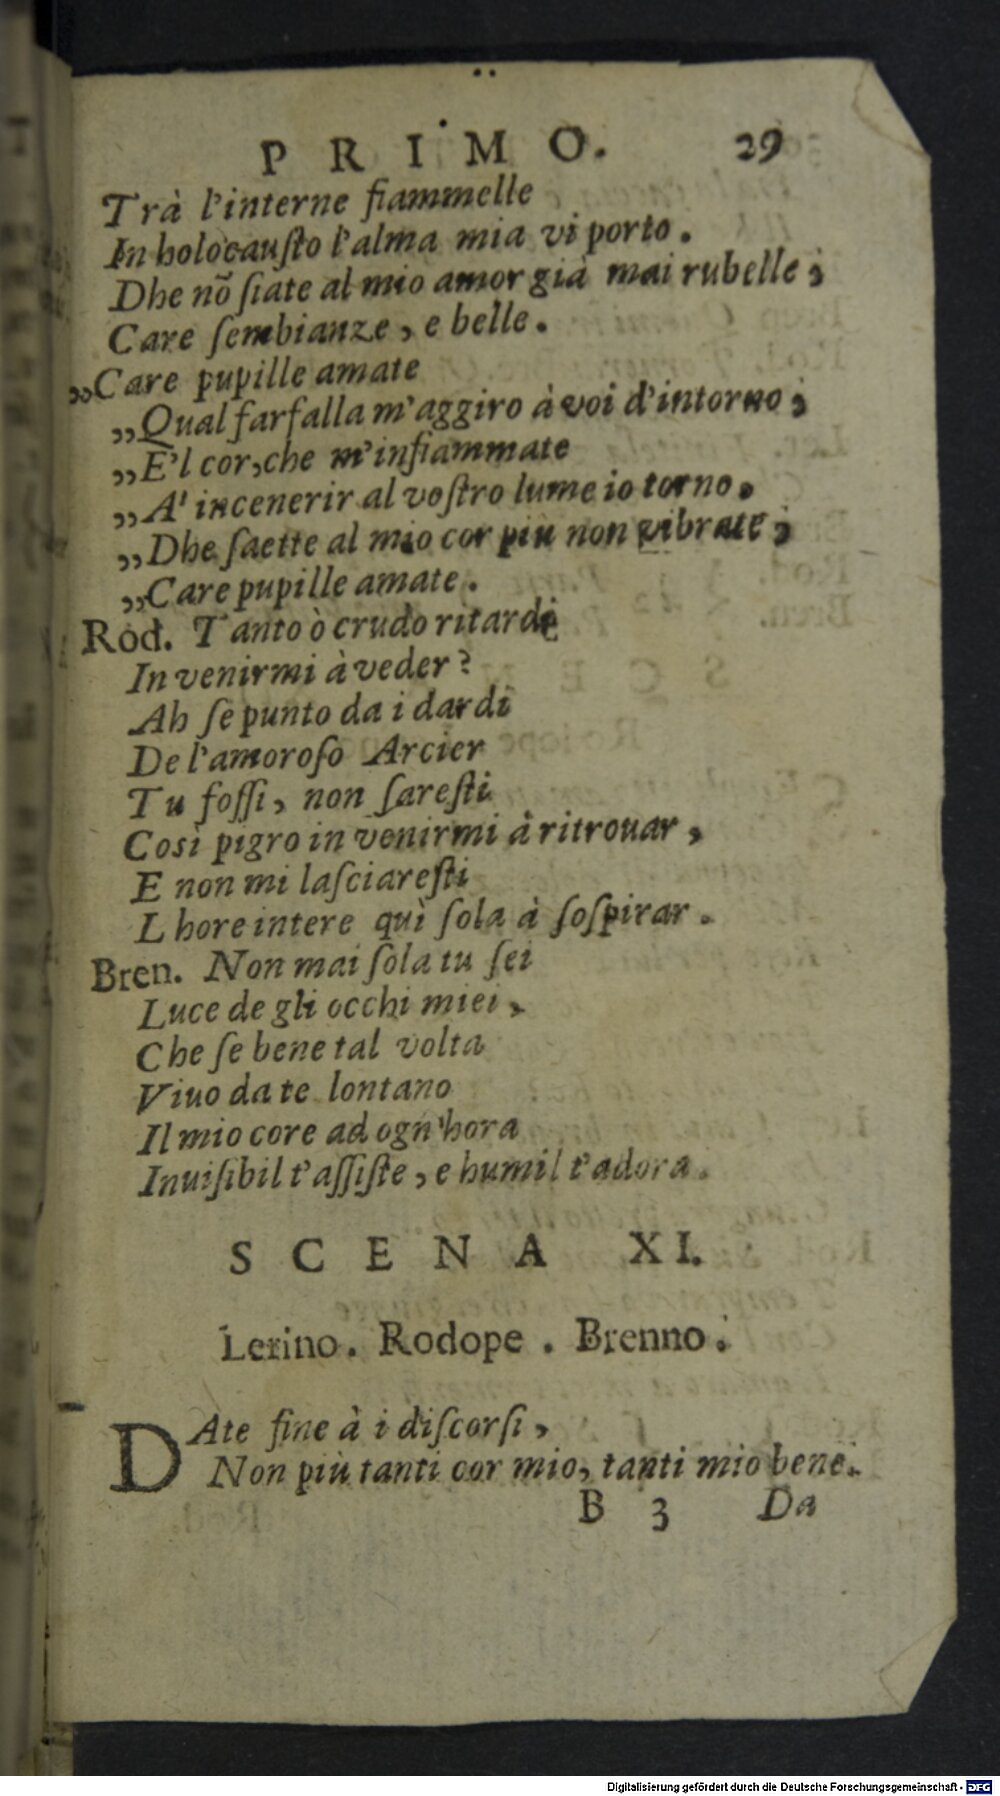 PRIMO. 29
Trà l'interne fiammelle
In holocauſto l'alma mia vi porto.
Dhe nõ ſiate al mio amor già mai rubelle;
Care ſembianze, e belle.
„Care pupille amate
„Qual farfalla m'aggiro à voi d'intorno;
„E'l cor, che m'infiammate
„A' incenerir al voſtro lume io torno.
„Dhe ſaette al mio cor più non vibrate;
„Care pupille amate.
Rod. Tanto ò crudo ritardi
In venirmi à veder?
Ah ſe punto da i dardi
De l'amoroſo Arcier
Tu foſſi, non ſareſti
Così pigro in venirmi à ritrouar,
E non mi laſciareſti
L hore intere quì ſola à ſoſpirar.
Bren. Non mai ſola tu ſei
Luce de gli occhi miei,
Che ſe bene tal volta
Viuo da te lontano
Il mio core ad ogn'hora
Inuiſibil t'aſſiſte, e humil t'adora.
SCENA XI.
Lerino. Rodope. Brenno.
DAte fine à i diſcorſi,
Non più tanti cor mio, tanti mio bene.
B 3 Da
Digitalisierung gefördert durch die Deutsche Forschungsgemeinschaft - DFG